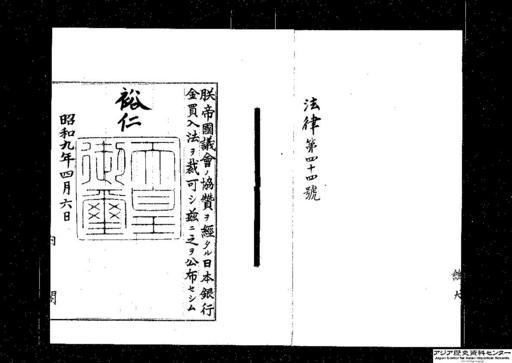 法律第四十四號
朕帝國議會ノ協贊ヲ經タル日本銀行
金買入法ヲ裁可シ茲ニ之ヲ公布セシム
裕仁
天皇
御璽
昭和九年四月六日
内閣
アジア歴史資料センター
Japan Center for Asian Historical Records